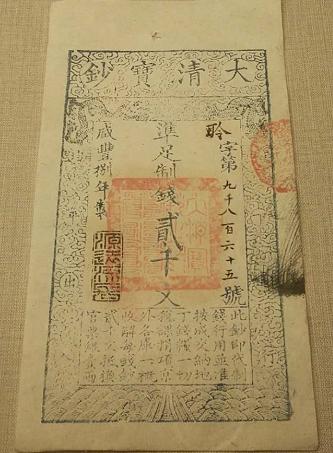 大清寶鈔
聆字第九千八百六十五號
準足制錢貳千文
咸豐捌年製
此鈔即代制
錢行用並准
按成交納地
丁錢糧一切
稅課捐項京
外各庫一概
收解每錢鈔
貳千文抵換
官票銀壹兩